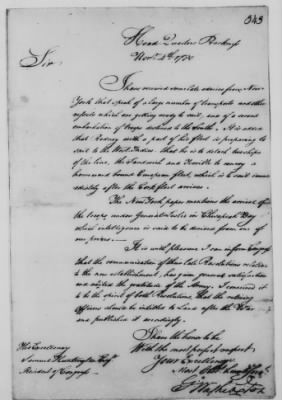 343
Head Quarters Preakness
Novr 4th 1780
Sir
I have received some late advices from New
York that speak of a large number of transports and other
vessels which are getting ready to sail, and of a second
embarkation of troops destined to the South. It is added
that Rodney with a part of his fleet is preparing to
sail to the West Indies that he is to detach two ships
of the line, the Sandwich and Terrible to convoy a
homeward bound European fleet, which is to sail imme
diately after the Cork fleet arrives.
The New York paper mentions the arrival of
the troops under General Leslie in Chesapeak Bay
which intelligence is said to be derived from one of
our papers.
It is with pleasure I can inform Congress
that the communication of their late Resolutions relative
to the new establishment, has given general satisfaction
and excited the gratitude of the Army. I conceived it
to be the spirit of both Resolutions, that the retiring
officers should be intitled to Land after the War
and published it accordingly.
I have the honor to be
With the most perfect respect
Your Excellency's
Most Obt
His Excellency
Samuel Huntington Esqr
President of Congress
Go Washington